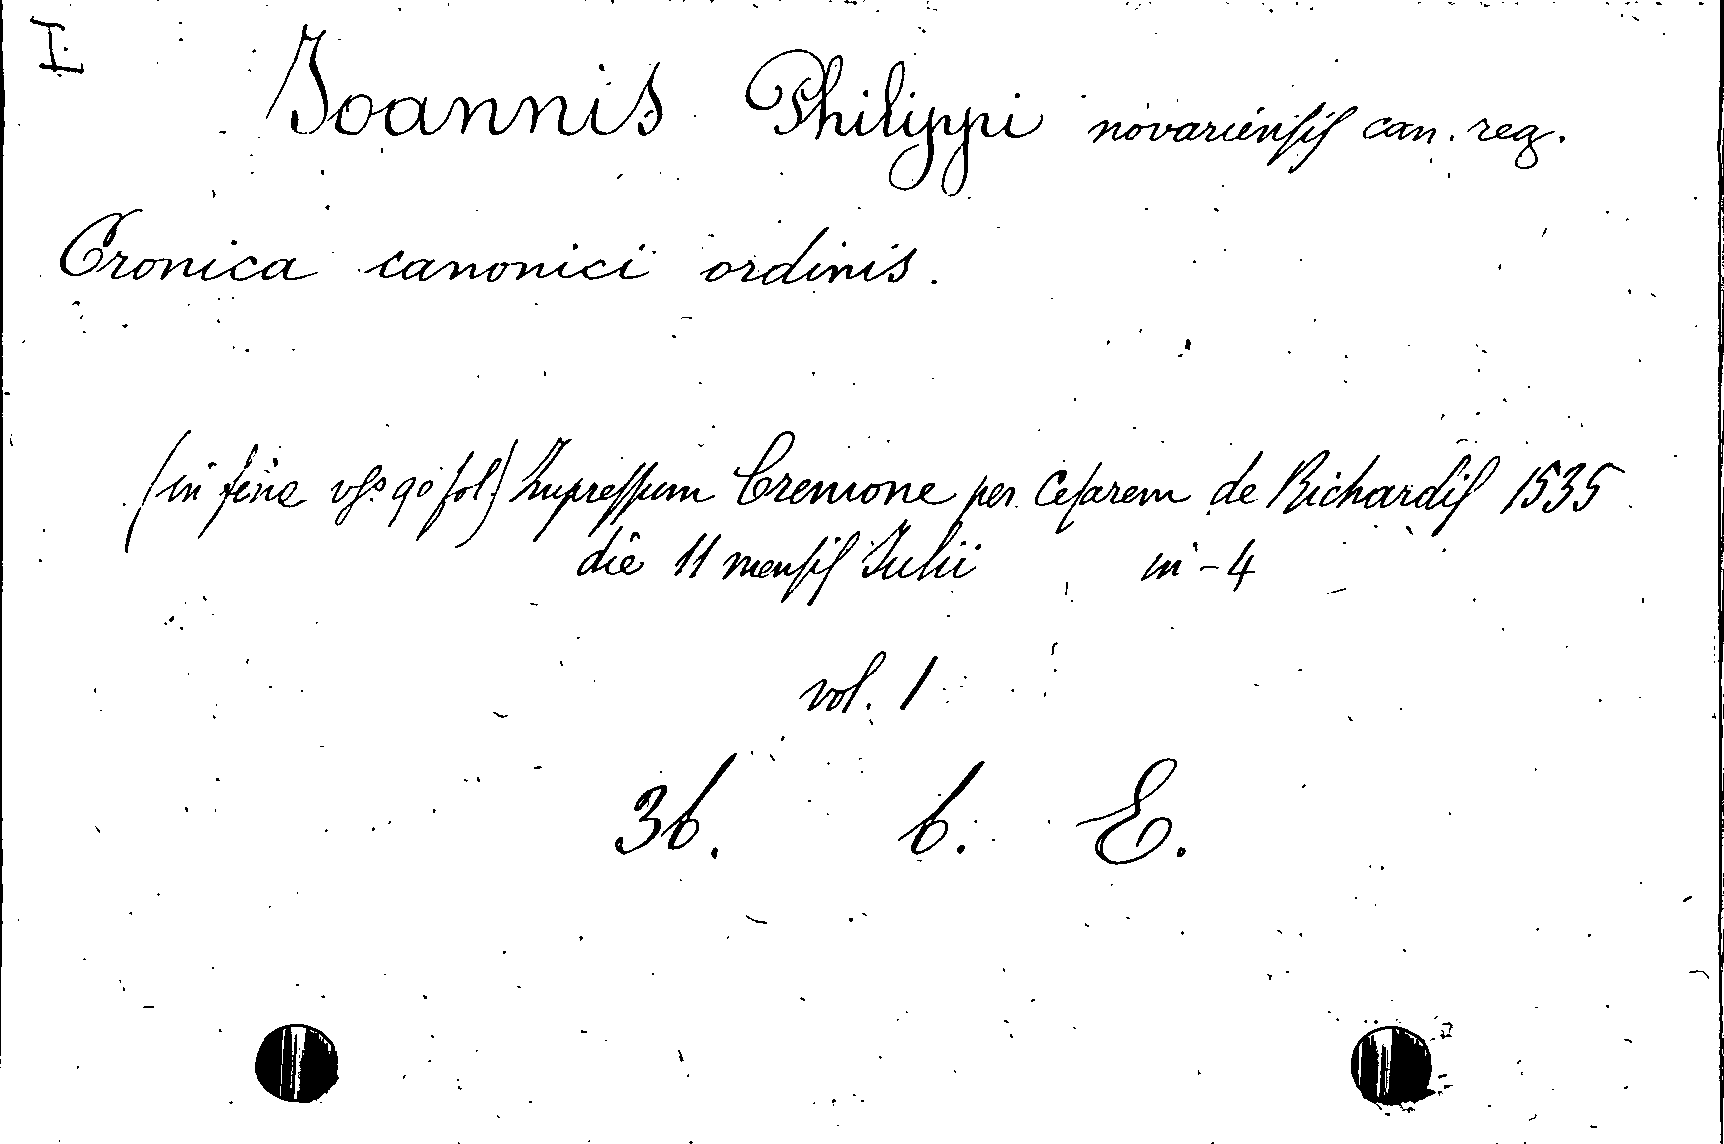 I
Joannis Philippi novariensis can. reg.
Cronica canonici ordinis.
(in fine vſo 90 fol.) Impressum Cremone per Cesarem de Richardis 1535
die 11 mensis Julii in-4
vol. 1
36. 6. E.